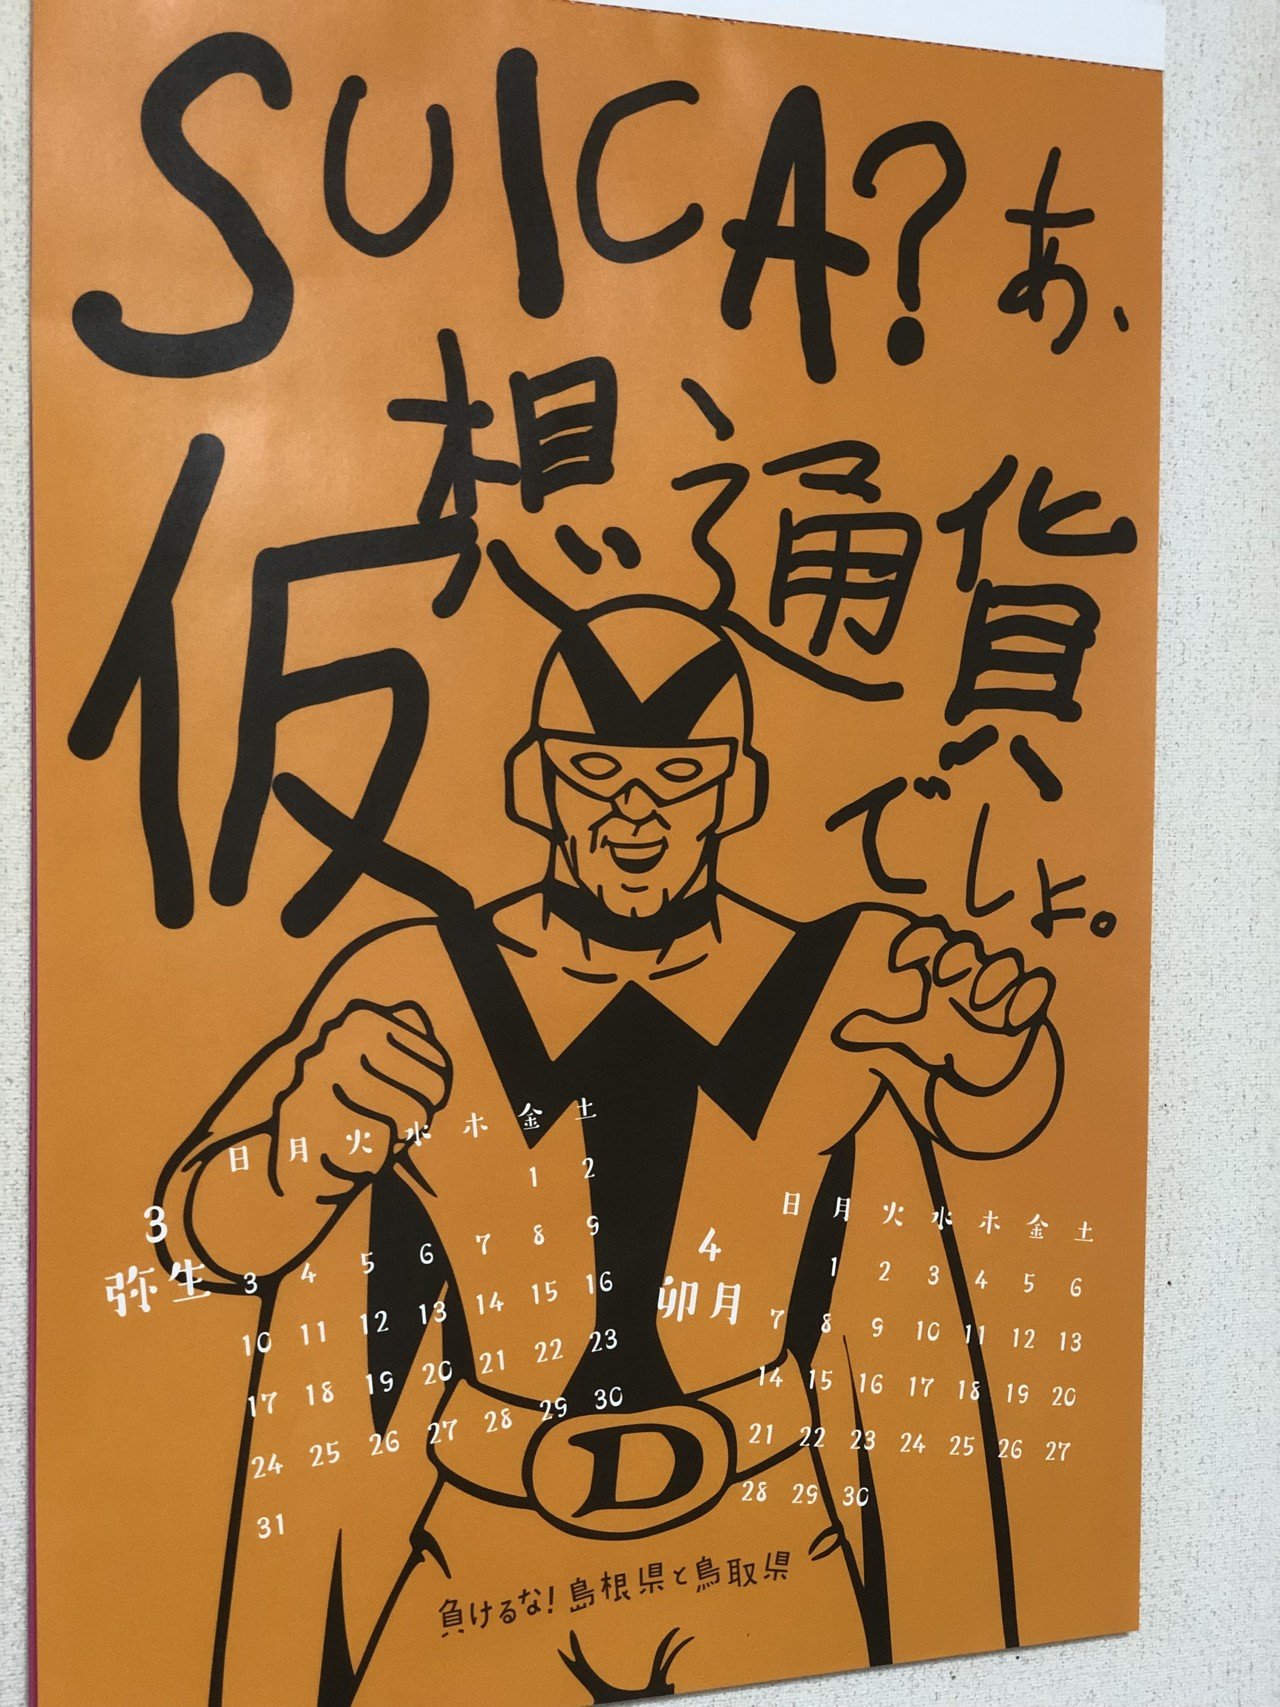 SUICA?あ、
仮想通貨
でしょ。
3
弥生
日 月 火 水 木 金 土
1 2
3 4 5 6 7 8 9
10 11 12 13 14 15 16
17 18 19 20 21 22 23
24 25 26 27 28 29 30
31
4
卯月
日 月 火 水 木 金 土
1 2 3 4 5 6
7 8 9 10 11 12 13
14 15 16 17 18 19 20
21 22 23 24 25 26 27
28 29 30
D
負けるな!島根県と鳥取県